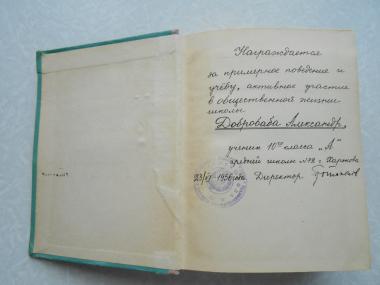 Награждается
за примерное поведение и
учёбу, активное участие
в общественной жизни
школы
Доброваба Александр,
ученик 10го класса "А"
средней школы №78 г. Харькова
23/VI-1956 года Директор